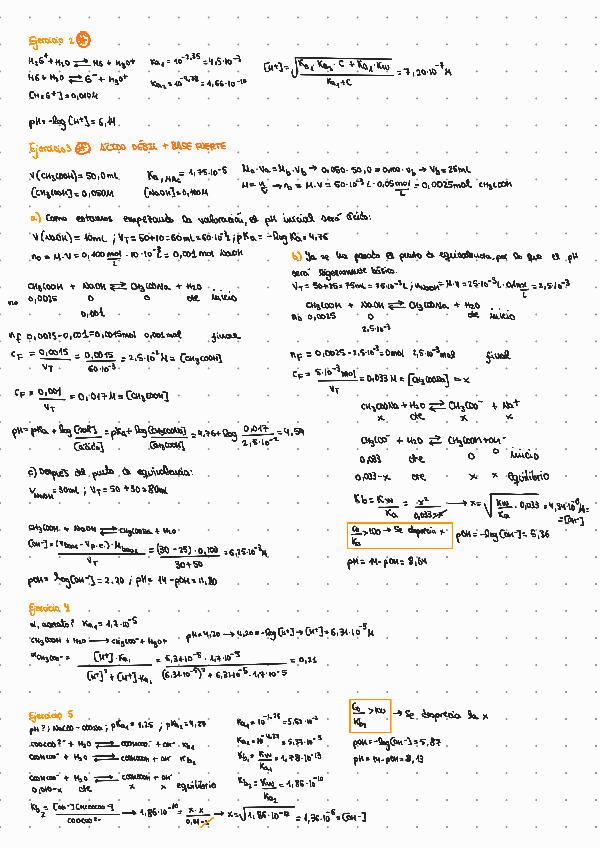 Ejercicio 2
H₂G⁺ + H₂O ⇌ HG + H₃O⁺ Ka₁ = 10^-2,35 = 4,5·10⁻³
HG + H₂O ⇌ G⁻ + H₃O⁺ Ka₂ = 10^-9,78 = 1,66·10⁻¹⁰
[H⁺] = √(Ka₁·Ka₂·C + Ka₁·Kw / Ka₁ + C) = 7,20·10⁻⁷ M
[H₂G⁺] = 0,010M
pH = -log[H⁺] = 6,14
Ejercicio 3 ÁCIDO DÉBIL + BASE FUERTE
V(CH₃COOH) = 50,0mL Ka, HAc = 1,75·10⁻⁵ Ma·Va = Mb·Vb → 0,050·50,0 = 0,100·Vb → Vb = 25mL
[CH₃COOH] = 0,050M [NaOH] = 0,100M M = n/V → n₀ = M·V = 50·10⁻³ L·0,05 mol/L = 0,0025mol CH₃COOH
a) Como estamos empezando la valoración, el pH inicial será ácido:
V(NaOH) = 10mL ; VT = 50+10 = 60mL = 60·10⁻³L ; pKa = -log Ka = 4,76
n₀ = M·V = 0,100 mol/L · 10·10⁻³L = 0,001 mol NaOH
CH₃COOH + NaOH ⇌ CH₃COONa + H₂O
n₀ 0,0025 0 0 cte inicio
0,001
nf 0,0025-0,001 = 0,0015mol 0,001mol final
CF = 0,0015 / VT = 0,0015 / 60·10⁻³ = 2,5·10⁻² M = [CH₃COOH]
CF = 0,001 / VT = 0,017 M = [CH₃COOH]
pH = pKa + log [sal] / [ácido] = pKa + log [CH₃COONa] / [CH₃COOH] = 4,76 + log 0,017 / 2,5·10⁻² = 4,59
b) Ya se ha pasado el punto de equivalencia, por lo que el pH
será ligeramente básico.
VT = 50+25 = 75mL = 75·10⁻³L ; nNaOH = M·V = 25·10⁻³L·0,1 mol/L = 2,5·10⁻³
CH₃COOH + NaOH ⇌ CH₃COONa + H₂O
n₀ 0,0025 0 0 cte inicio
2,5·10⁻³
nF = 0,0025 - 2,5·10⁻³ = 0mol 2,5·10⁻³mol final
CF = 5·10⁻³mol / VT = 0,033 M = [CH₃COONa] = x
CH₃COONa + H₂O ⇌ CH₃COO⁻ + Na⁺
x cte x x
CH₃COO⁻ + H₂O ⇌ CH₃COOH + OH⁻
0,033 cte 0 0 inicio
0,033-x cte x x equilibrio
Kb = Kw / Ka = x² / 0,033-x → x = √(Kw / Ka · 0,033) = 4,34·10⁻⁶ M =
= [OH⁻]
C₀ / Kb > 100 → Se desprecia x pOH = -log[OH⁻] = 5,36
pH = 14-pOH = 8,64
c) Después del punto de equivalencia:
VNaOH = 30mL ; VT = 50 + 30 = 80mL
CH₃COOH + NaOH ⇌ CH₃COONa + H₂O
[OH⁻] = (VNaOH - Vp.e.)·MNaOH / VT = (30-25)·0,100 / 30+50 = 6,25·10⁻³ M
pOH = -log[OH⁻] = 2,20 ; pH = 14-pOH = 11,80
Ejercicio 4
α, acetato? Ka₁ = 1,7·10⁻⁵
CH₃COOH + H₂O → CH₃COO⁻ + H₃O⁺ pH = 4,20 → 4,20 = -log[H⁺] → [H⁺] = 6,31·10⁻⁵ M
αCH₃COO⁻ = [H⁺]·Ka₁ / [H⁺]² + [H⁺]·Ka₁ = 6,31·10⁻⁵·1,7·10⁻⁵ / (6,31·10⁻⁵)² + 6,31·10⁻⁵·1,7·10⁻⁵ = 0,21
Ejercicio 5
pH?; NaCOO-COONa ; pKa₁ = 1,25 ; pKa₂ = 4,27
+ H₂O ⇌ COOHCOO⁻ + OH⁻ Kb₁
COOHCOO⁻ + H₂O ⇌ COOHCOOH + OH⁻ Kb₂
COOHCOO⁻ + H₂O ⇌ COOHCOOH + OH⁻
0,010-x cte x x equilibrio
Ka₁ = 10^-1,25 = 5,62·10⁻²
Ka₂ = 10^-4,27 = 5,37·10⁻⁵
Kb₁ = Kw / Ka₁ = 1,78·10⁻¹³
Kb₂ = Kw / Ka₂ = 1,86·10⁻¹⁰
→ 1,86·10⁻¹⁰ = x·x / 0,01-x → x = √1,86·10⁻¹² = 1,36·10⁻⁶ = [OH⁻]
C₀ / Kb₂ > 100 → Se desprecia la x
pOH = -log[OH⁻] = 5,87
pH = 14-pOH = 8,13